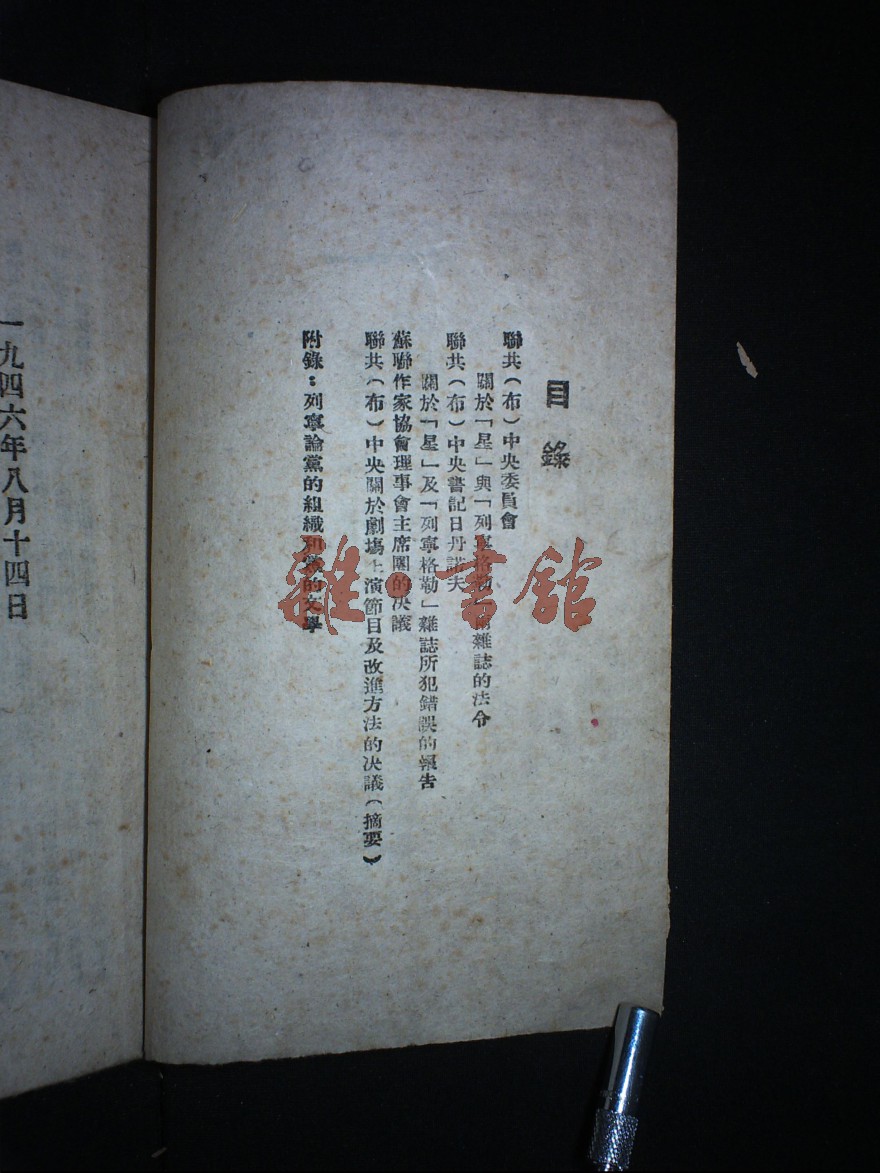 目錄
聯共(布)中央委員會
關於「星」與「列寧格勒」兩雜誌的法令
聯共(布)中央書記日丹諾夫
關於「星」及「列寧格勒」雜誌所犯錯誤的報告
蘇聯作家協會理事會主席團的决議
聯共(布)中央關於劇塲上演節目及改進方法的决議(摘要)
附錄:列寧論黨的組織和黨的文學
一九四六年八月十四日
雜·書舘